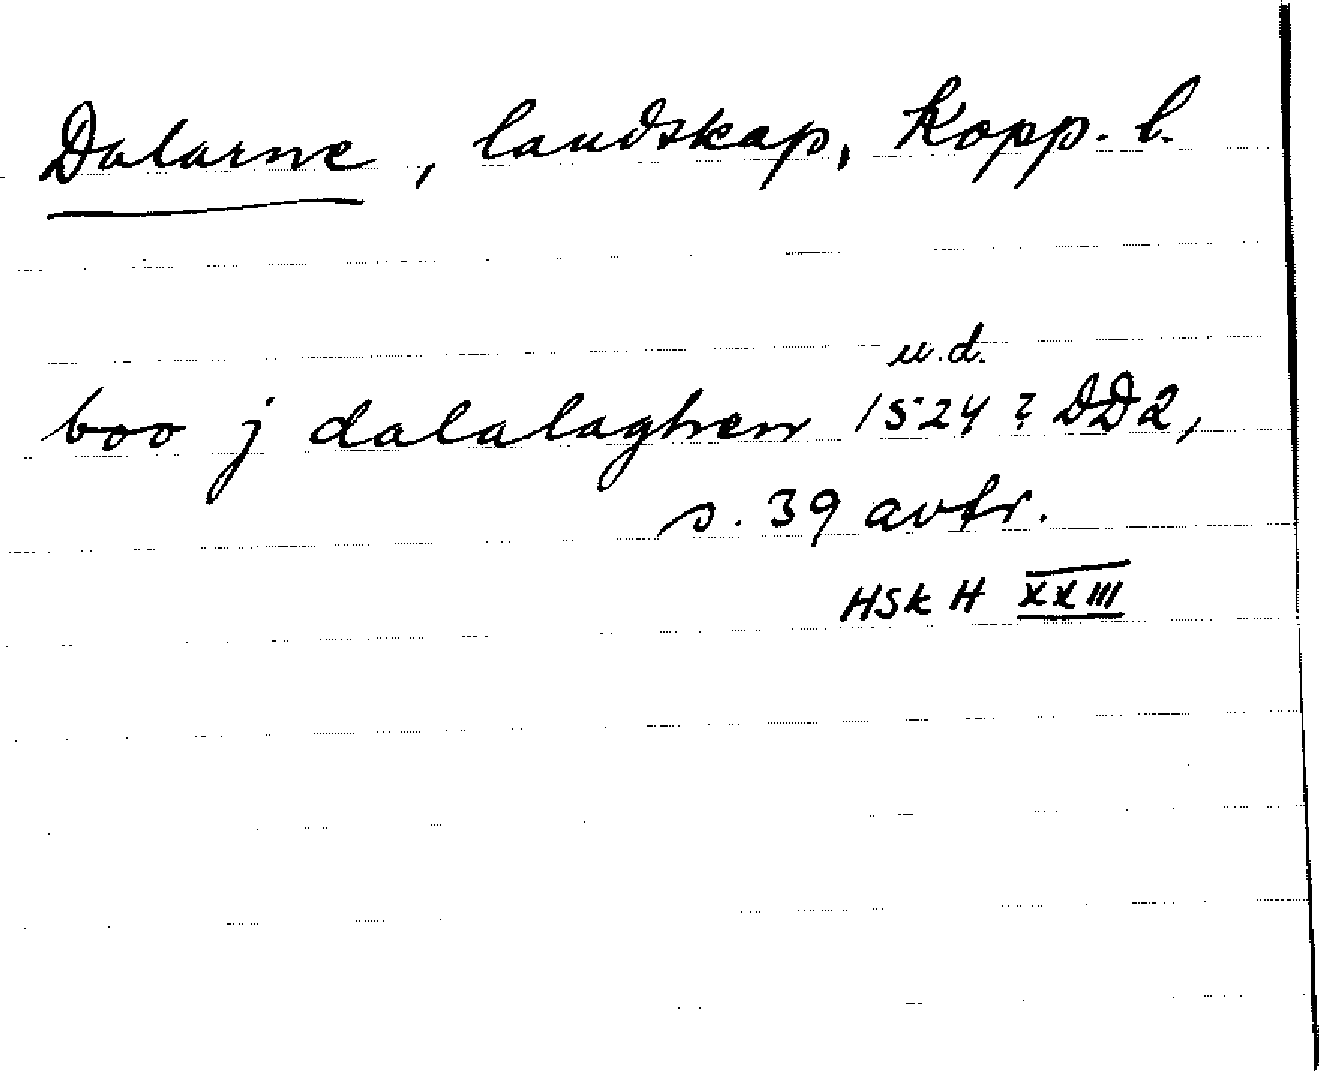 Dalarne, landskap, Kopp. l.
u.d.
boo j dalalaghen 1524? DD2,
s. 39 avtr.
HSH XXIII